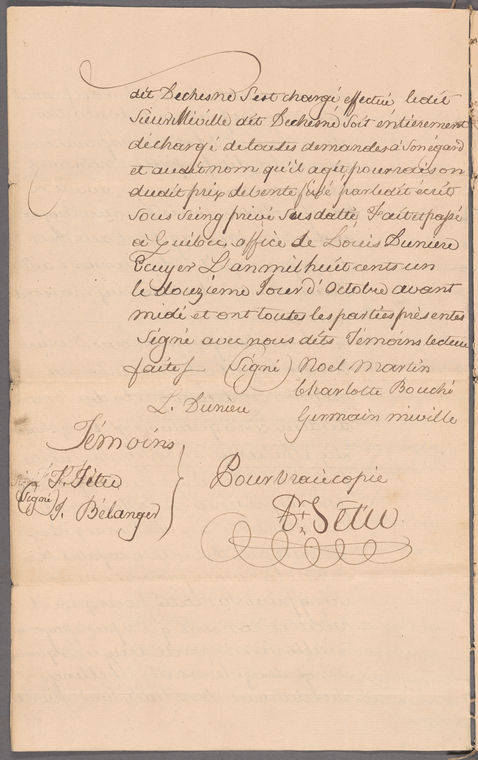 dit Dechesne s'est chargé effectué ledit
Sieur Miville dit Dechesne soit entièrement
déchargé de toutes demandes à son égard
et audit nom qu'il agit pour raison
dudit prix de vente fixé par ledit écrit
Sous Seing privé susdaté, Fait et passé
à Québec office de Louis Duniere
Ecuyer L'an mil huit cents un
le douzième Jour d'Octobre avant
midi et ont toutes les parties présentes
Signé avec nous dits Témoins lecture
faite (Signé) Noel Martin
Charlotte Bouché
L. Duniere Germain miville
Témoins
Signé F. Têtu
(Signé) J. Bélanger
Pour Vraie copie
Fr. Têtu